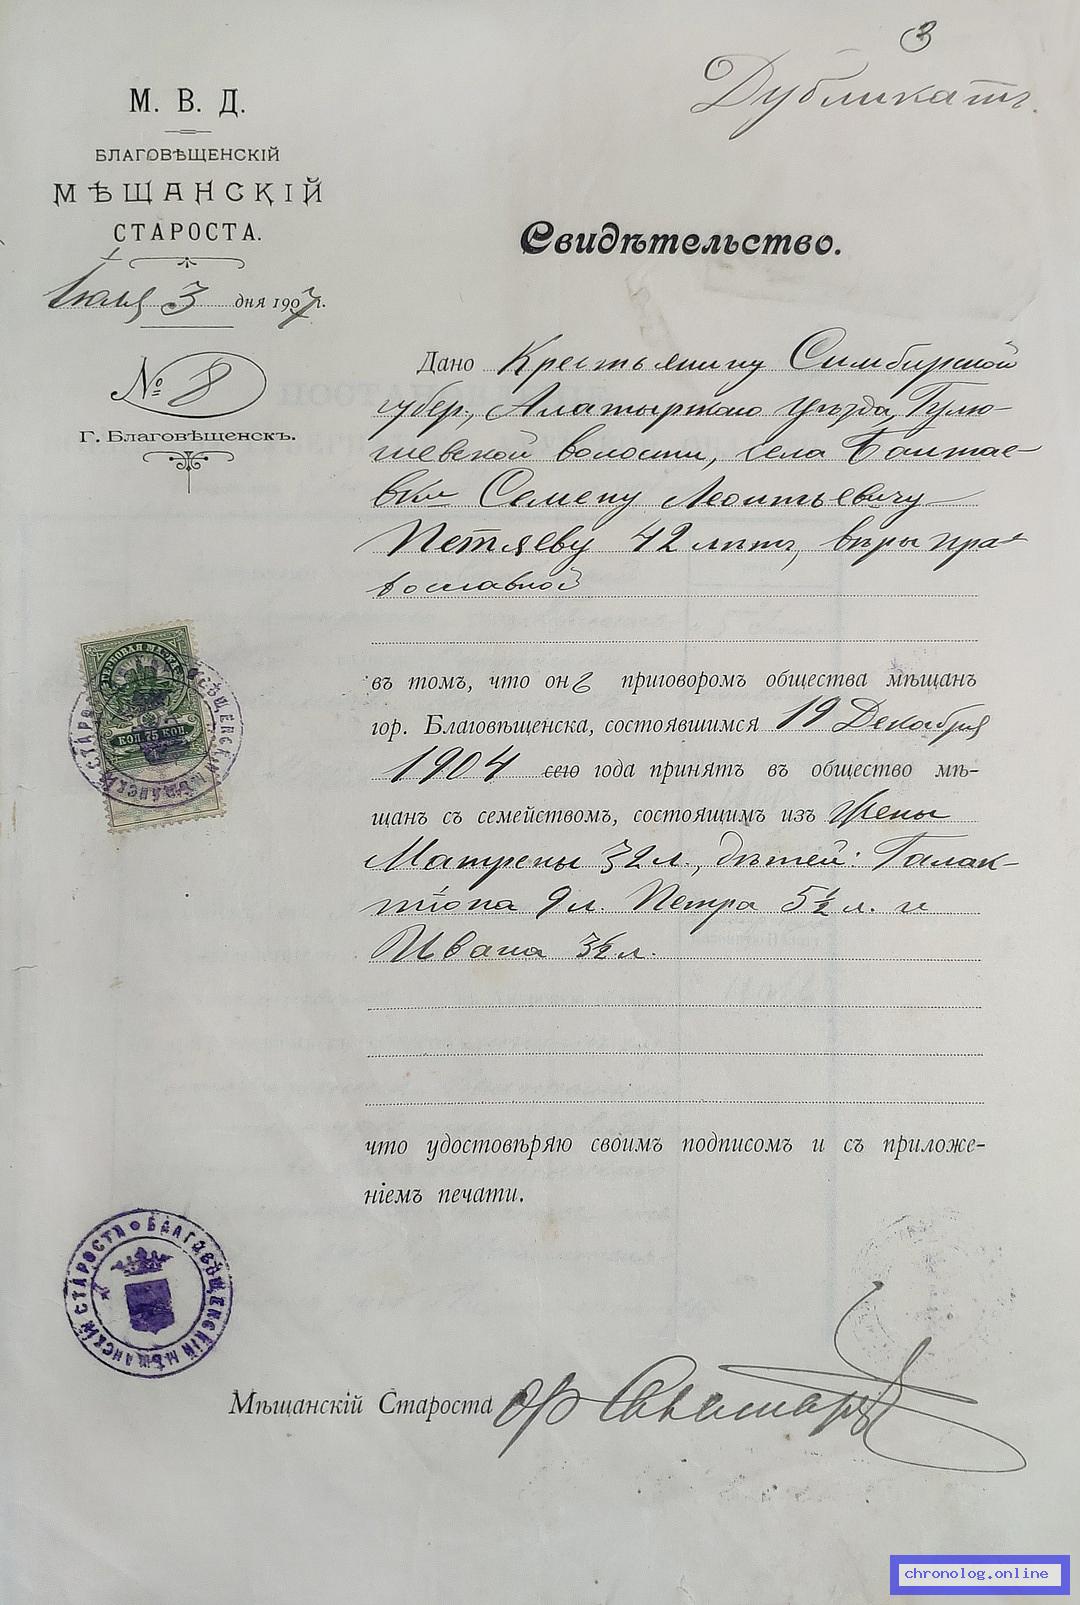 3
Дубликатъ.
М. В. Д.
БЛАГОВѢЩЕНСКІЙ
МѢЩАНСКІЙ
СТАРОСТА.
Июля 3 дня 1907 г.
№ 8
Г. Благовѣщенскъ.
Свидѣтельство.
Дано Крестьянину Симбирской
губер., Алатырскаго уѣзда,
волости, села
Семену Леонтьевичу
Петляеву 42 лѣтъ, вѣры пра-
вославной
въ томъ, что онъ приговоромъ общества мѣщанъ
гор. Благовѣщенска, состоявшимся 19 Декабря
1904 сего года принятъ въ общество мѣ-
щанъ съ семействомъ, состоящимъ изъ Жены
Матрены 32 л., дѣтей: Галак-
тіона 9 л. Петра 5½ л. и
Ивана 3½ л.
что удостовѣряю своимъ подписомъ и съ приложе-
ніемъ печати.
ГЕРБОВАЯ МАРКА
КОП. 75 КОП.
БЛАГОВѢЩЕНСКІЙ МѢЩАНСКІЙ СТАРОСТА
Мѣщанскій Староста
chronolog.online